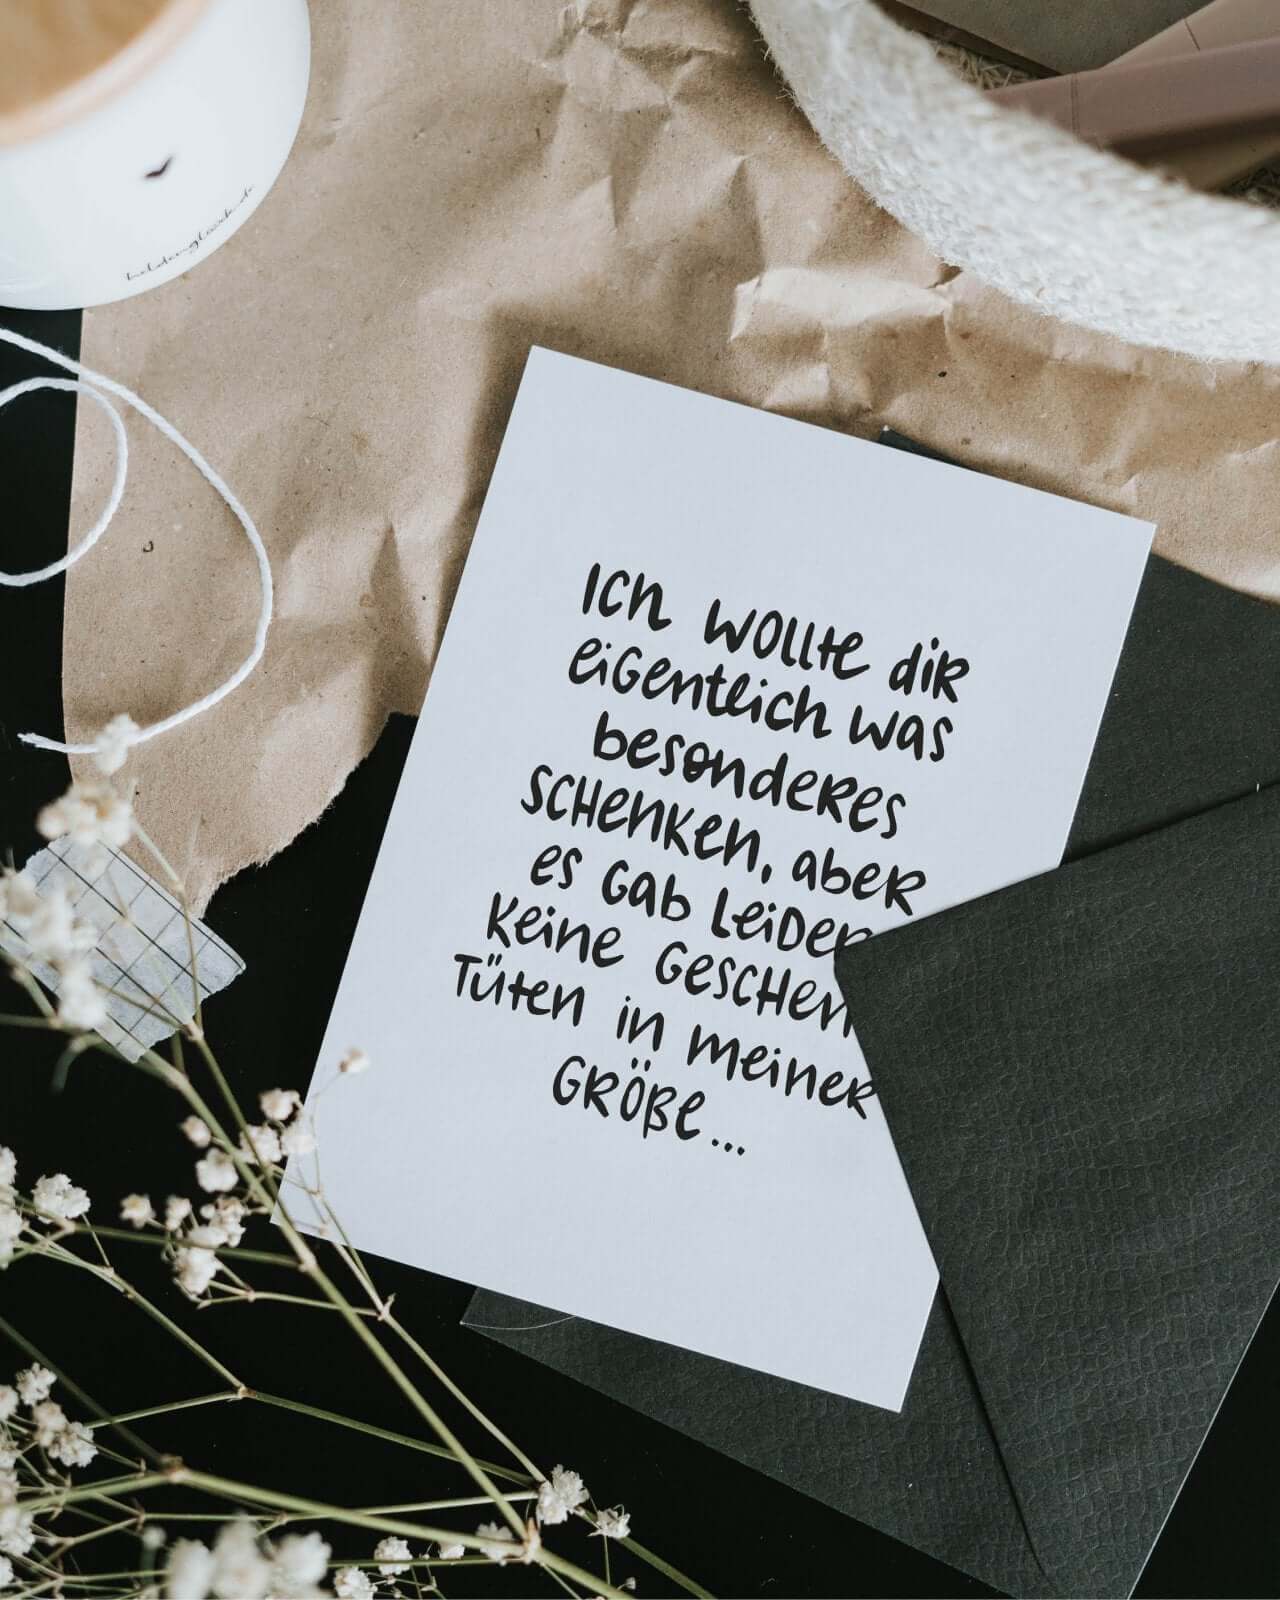 heldenglueck.de
Ich wollte dir
eigentlich was
besonderes
schenken, aber
es gab leider
keine Geschen
Tüten in meiner
Größe...